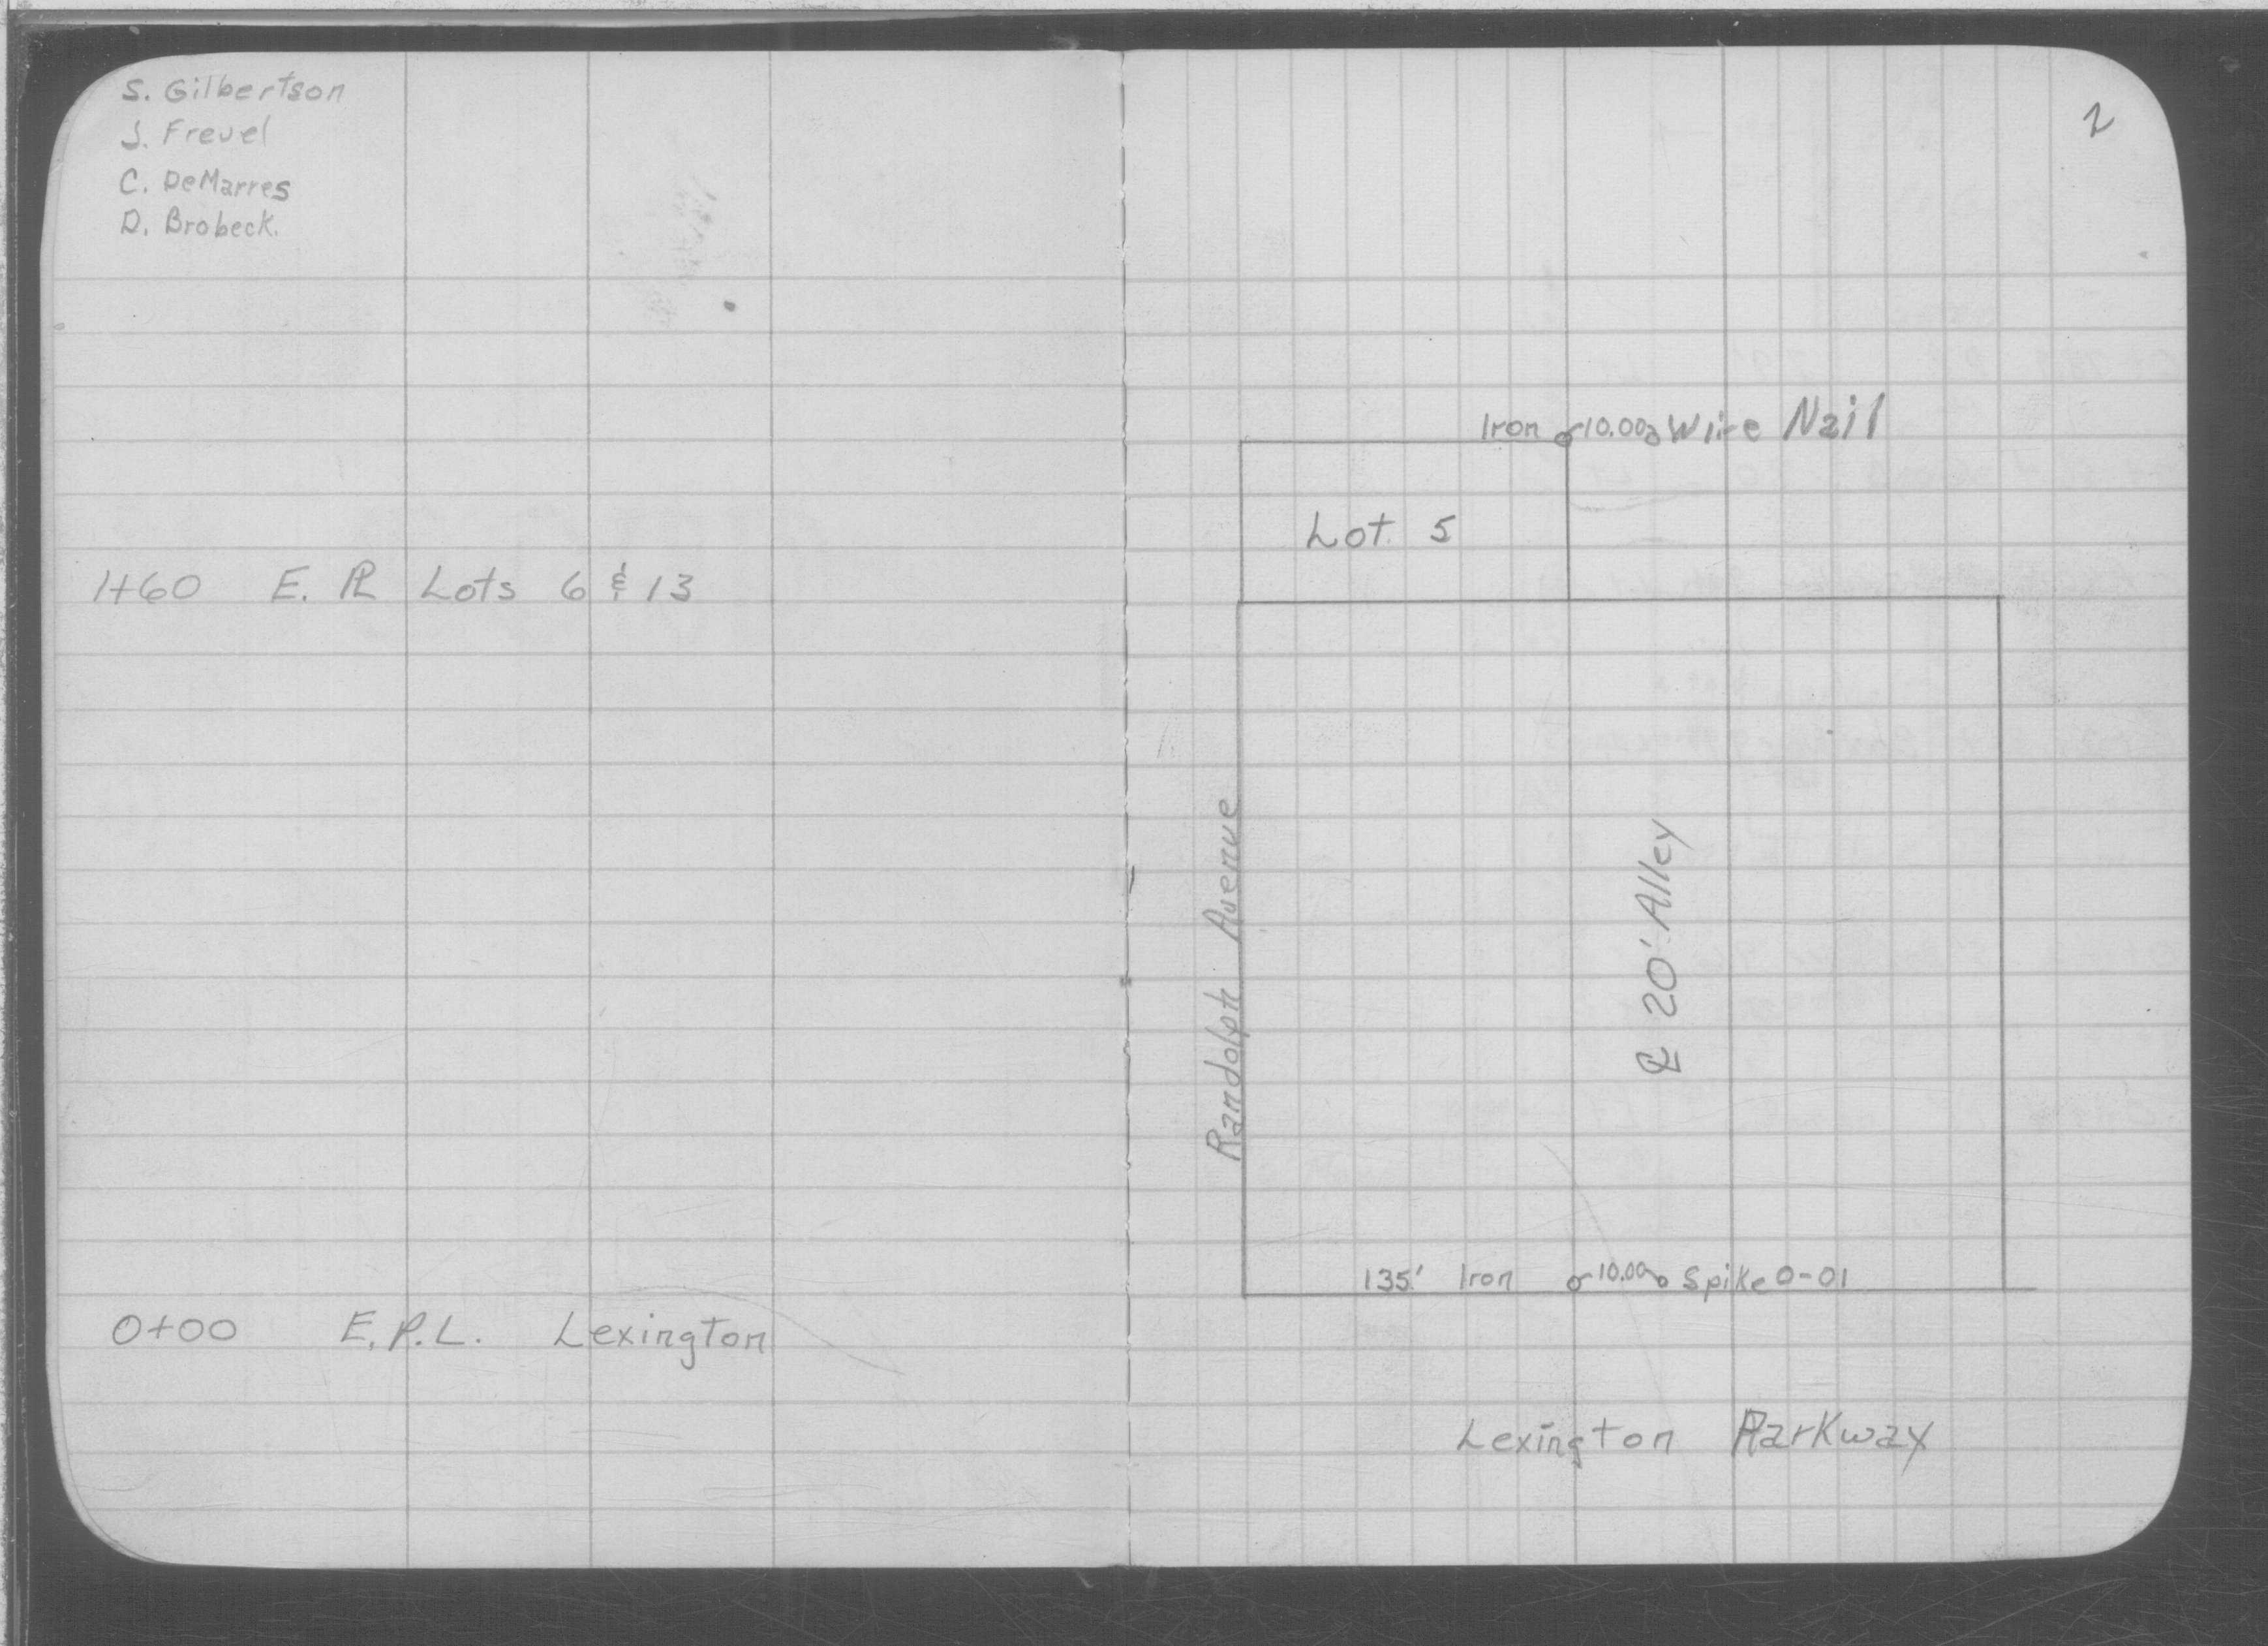 S. Gilbertson
J. Frevel
C. DeMarres
D. Brobeck.
1+60 E. PL Lots 6 & 13
0+00 E.P.L. Lexington
2
Iron 10.00 Wire Nail
Lot 5
Randolph Avenue
℄ 20' Alley
135' Iron 10.00 Spike 0-01
Lexington Parkway